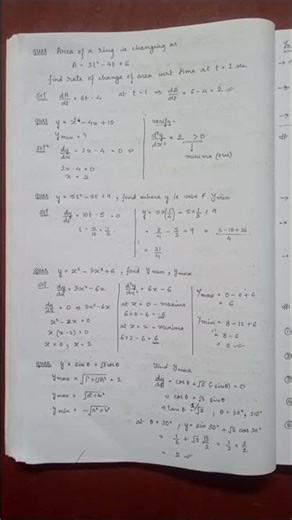 Ques Area of a ring is changing as
A = 3t² - 4t + 6
find rate of change of area wrt time at t = 1 sec
Sol dA/dt = 6t - 4 at t = 1 ⇒ dA/dt = 6 - 4 = 2
Ques y = x² - 4x + 10
Ymin = ?
Sol dy/dx = 2x - 4 = 0 ⇒
2x - 4 = 0
x = 2
verify -
d²y/dx² = 2 > 0
minima
Ques y = 5t² - 5t + 9, find where y is min & Ymin
Sol dy/dt = 10t - 5 = 0
t = 5/10 = 1/2
y = 5 × (1/4) - 5 × 1/2 + 9
= 5/4 - 5/2 + 9 = 5 - 10 + 36/4
= 31/4
Ques y = x³ - 3x² + 6, find Ymin, Ymax
Sol dy/dx = 3x² - 6x
dy/dx = 0 ⇒ 3x² - 6x
x² - 2x = 0
x (x - 2) = 0
x = 0, x = 2
d²y/dx² = 6x - 6
at x = 0 - maxima
6 × 0 - 6 = -6
at x = 2 - minima
6 × 2 - 6 = 6
Ymax = 0 - 0 + 6
= 6
Ymin = 8 - 12 + 6
= 8 - 6
= 2
Ques y = sin θ + √3 cos θ find Ymax
Ymax = = 2
Ymax = √a² + b²
Ymin = -√a² + b²
dy/dθ = cos θ + √3 (-sin θ) = 0
⇒ cos θ = √3 sin θ
θ = 30°
at θ = 30°, y = sin 30° + √3 cos 30°
= 1/2 + √3 √3/2 = 1/2 + 3/2
= 2